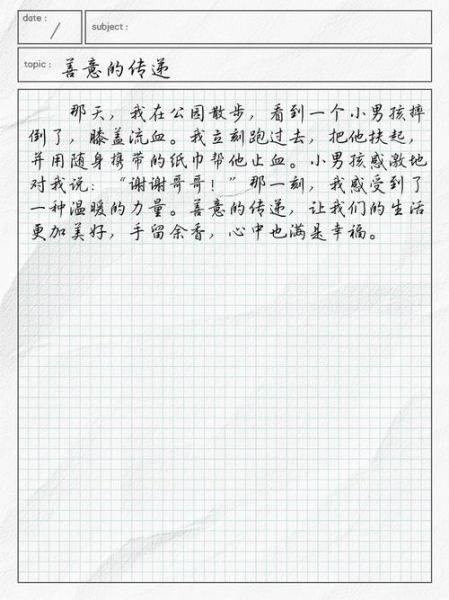 date :
/
subject :
topic : 善意的传递
那天，我在公园散步，看到一个小男孩摔
倒了，膝盖流血。我立刻跑过去，把他扶起，
并用随身携带的纸巾帮他止血。小男孩感激地
对我说：“谢谢哥哥！”那一刻，我感受到了
一种温暖的力量。善意的传递，让我们的生活
更加美好，手留余香，心中也满是幸福。